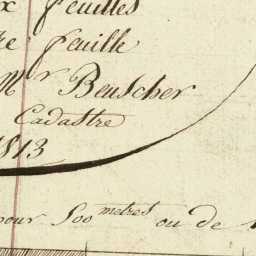 feuilles
feuille
Mr Beuscher
Cadastre
1813
pour 500 metres ou de